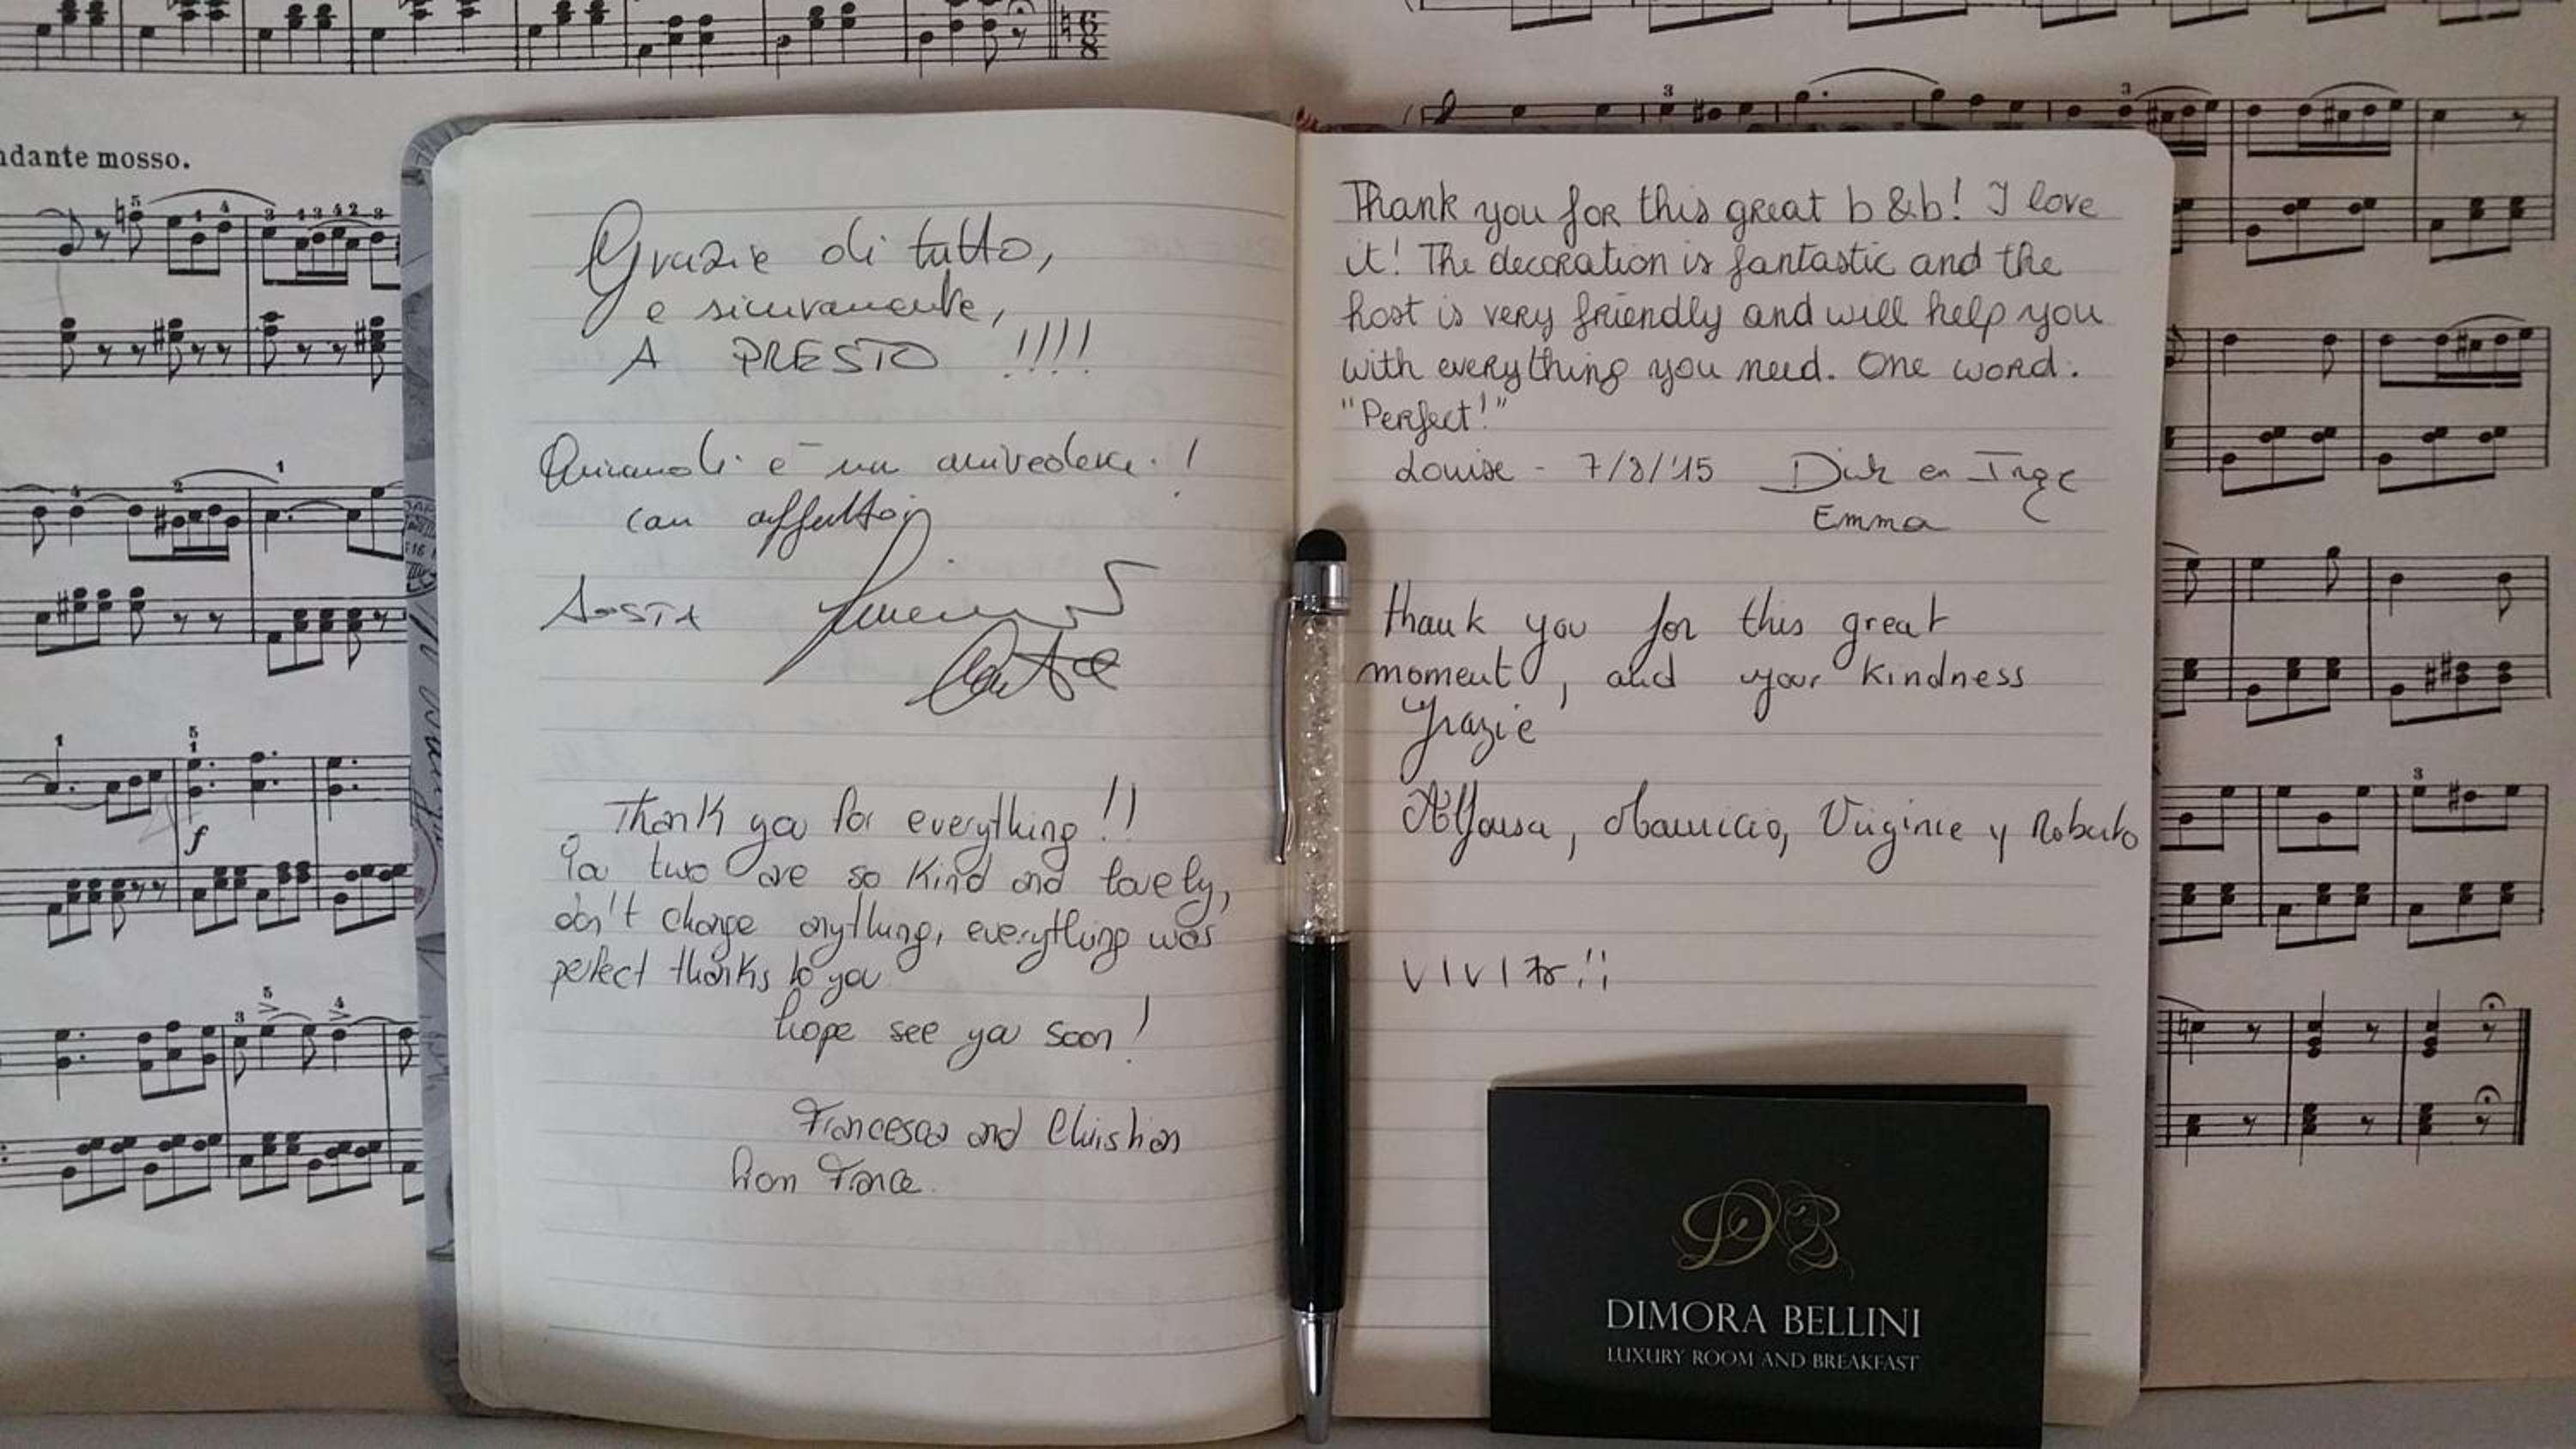 ndante mosso.
Grazie di tutto,
e sicuramente,
A PRESTO !!!!
è un arrivederci !
con affetto
AOSTA
Thank you for everything !!
You two are so kind and lovely,
don't change anything, everything was
perfect thanks to you
hope see you soon !
Francesca and Christian
from France.
Thank you for this great b&b! I love
it! The decoration is fantastic and the
host is very friendly and will help you
with everything you need. One word:
"Perfect!"
Louise - 7/8/'15 Dirk en Inge
Emma
Thank you for this great
moment, and your kindness
Grazie
Mauricio, Virginie y Roberto
DB
DIMORA BELLINI
LUXURY ROOM AND BREAKFAST